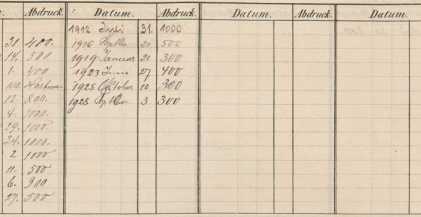 Abdruck. Datum. Abdruck. Datum. Abdruck. Datum.
1912 31. 1000
21. 400. 1916 21 500
14. 500 1919 Januar 21 300
1. 400 1923 Juni 27 400
1925 Oktober 10 300
12. 800. 1928 3 300
4. 700.
29. 1000
24. 1000.
2 1000
11. 500
6. 300
27. 500